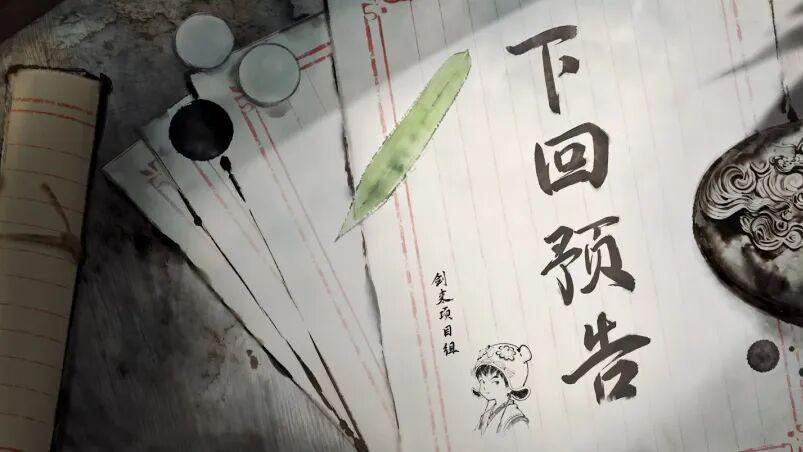 下回预告
剑来项目组